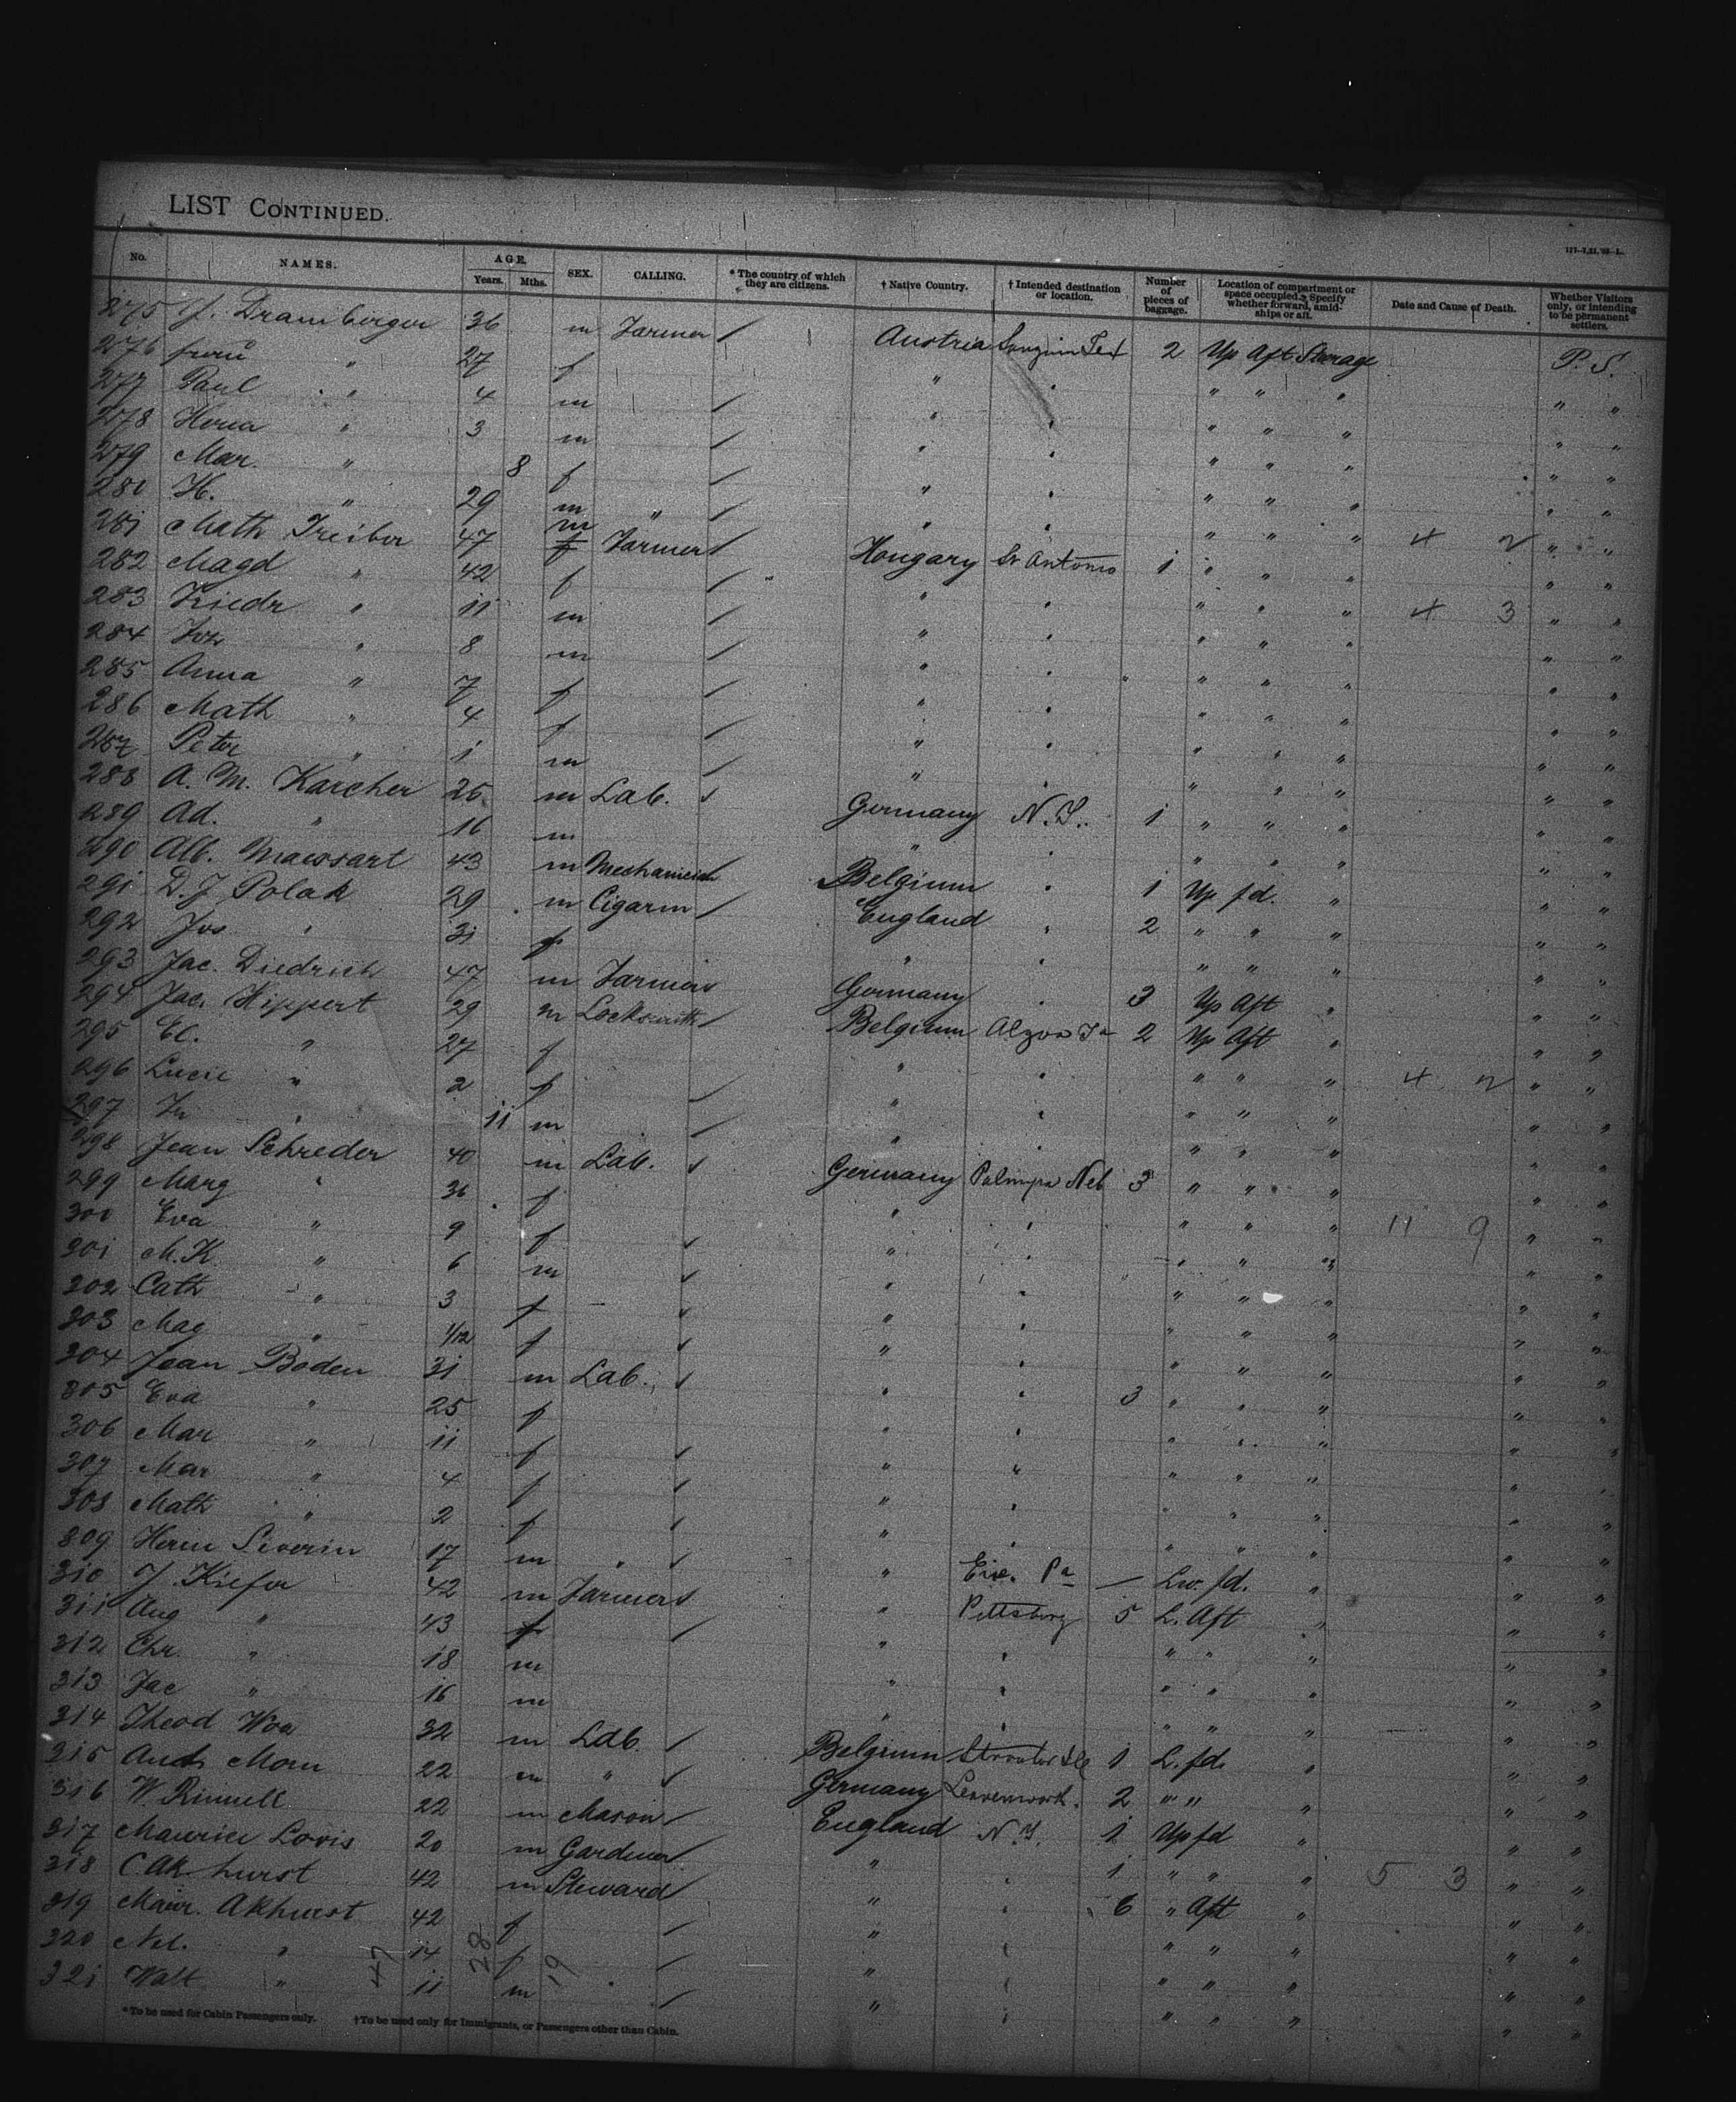 LIST CONTINUED.
No. NAMES. AGE. Years. Mths. SEX. CALLING. * The country of which they are citizens. † Native Country. † Intended destination or location. Number of pieces of baggage. Location of compartment or space occupied. Specify whether forward, amidships or aft. Date and Cause of Death. Whether Visitors only, or intending to be permanent settlers.
275 J. Dramberger 36 m Farmer / Austria 2 Up Aft Steerage P. S.
276 frau " 27 f " " " " " "
277 Paul " 4 m / " " " " " "
278 " 3 m / " " " " " "
279 Mar. " 8 f / " " " " " "
280 H. " 29 m " / " " " " " "
281 Math Treiber 47 m f Farmer / Hongary St Antonio 1 " " " 4 2 " "
282 Magd " 42 f / " " " " " " "
283 Friedr " 11 m / " " " " " 4 3 " "
284 Joh " 8 m / " " " " " " "
285 Anna " 7 f / " " " " " " "
286 Math " 4 f / " " " " " " "
287 Peter " 1 m / " " " " " " "
288 A. M. Karcher 25 m Lab. / Germany N.Y. 1 " " " " "
289 Ad. " 16 m " " " " " " "
290 Alb. 43 m / Belgium " 1 Up fd. " " "
291 D. J Polak 29 m Cigarm / England " 2 " " " " "
292 Jos " 31 f " " " " " " "
293 Jac. Diedrich 47 m Farmer / Germany " 3 Up Aft " " "
294 Jac. Hippert 29 m Locksmith / Belgium 2 Up Aft " " "
295 El. " 27 f " " " " " 4 2 " "
296 Lucie " 2 f / " " " " " " "
297 " 11 m / " " " " " " "
298 Jean Schreder 40 m Lab. / Germany Neb 3 " " " " "
299 Marg " 36 f " " " " " 11 9 " "
300 Eva " 9 f / " " " " " " "
301 M. K " 6 m / " " " " " " "
302 Cath " 3 f / " " " " " " "
303 Mag " 1/12 f / " " " " " " "
304 Jean Boden 31 m Lab. / " " 3 " " " " "
305 Eva " 25 f " " " " " " "
306 Mar " 11 f / " " " " " " "
307 Mar " 4 f / " " " " " " "
308 Math " 2 f / " " " " " " "
309 Herm Severin 17 m " / " Erie. Pa — Lw. fd. " " "
310 J. Kiefer 42 m Farmer / " Pittsburg 5 L. Aft " " "
311 Aug " 43 f / " " " " " " "
312 Chr. " 18 m " " " " " " "
313 Jac " 16 m " " " " " " "
314 Theod 32 m Lab. / Belgium 1 L. fd. " " "
315 22 m " / Germany Leavenwork. 2 " " " " "
316 W. Rinnell 22 m Mason / England N.Y. 1 Up fd " " "
317 Maurice Lovis 20 m Gardener / " " 1 " " " 5 3 " "
318 C. Akhurst 42 m Steward / " " 6 " Aft " " "
319 Akhurst 42 f / " " " " " " "
320 Nel. " 14 f / " " " " " " "
321 Walt " 11 m / " " " " " " "
47 28 19
* To be used for Cabin Passengers only. † To be used only for Immigrants, or Passengers other than Cabin.